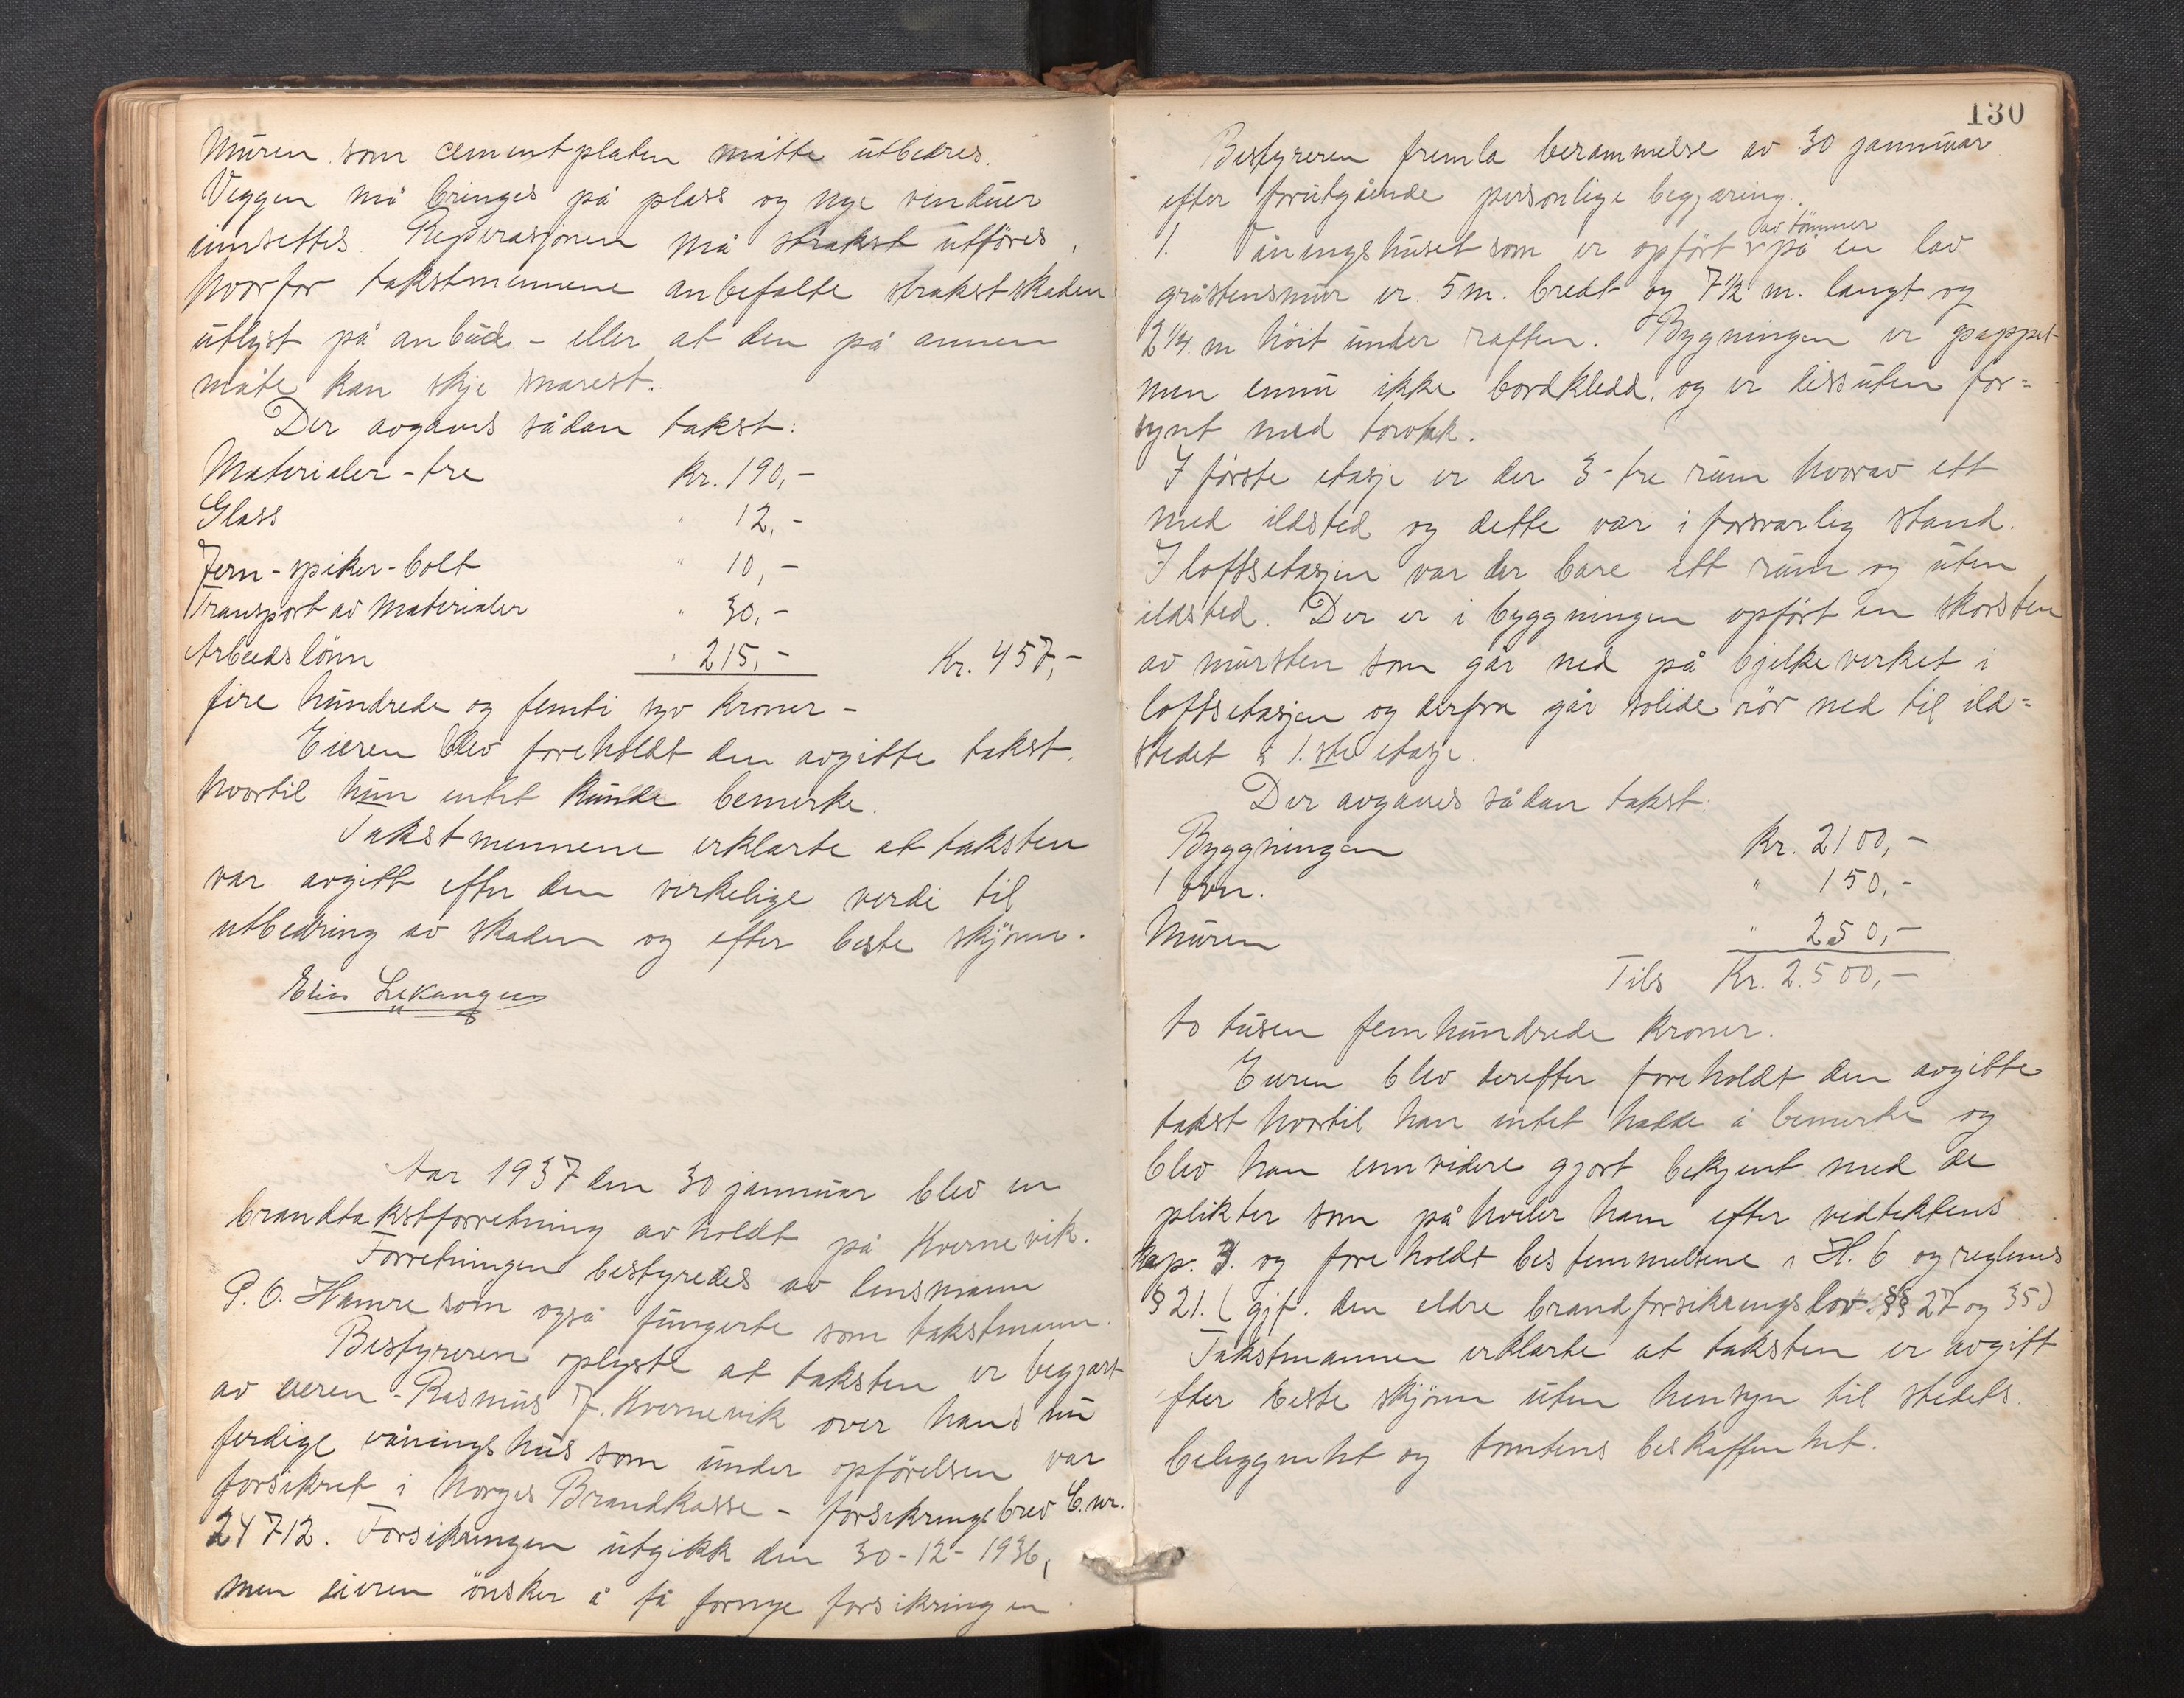 Muren som cementplaten måtte utbedres.
Veggen må bringes på plass og nye vinduer
innsettes. Reperasjonen må strakst utföres,
hvorfor takstmennene anbefalte strakst skaden
utlyst på anbud - eller at den på annen
måte kan skje snarest.
Der avgaves sådan takst:
Materialer - tre Kr. 190,-
Glass " 12,-
Jern - spiker - bolt " 10,-
Transport av materialer " 30,-
Arbeidslönn " 215,- Kr. 457,-
fire hundrede og femti syv kroner -
Eieren blev foreholdt den avgitte takst,
hvortil hun intet kunde bemerke.
Takstmennene erklærte at taksten
var avgitt efter den virkelige verdi til
utbedring av skaden og efter beste skjönn.
Elias Lekanger
Aar 1937 den 30 januar blev en
brandtakstforretning avholdt på Kvernevik.
Forretningen bestyredes av lensmann
P. O. Hamre som også fungerte som takstmann.
Bestyreren oplyste at taksten er begjært
av eieren - Rasmus J. Kvernevik over hans nu
ferdige våningshus som under opförelsen var
forsikret i Norges Brandkasse - forsikringsbrev C. nr.
24712. Forsikringen utgikk den 30-12-1936,
men eieren önsker å få fornye forsikringen.
130
Bestyreren fremla berammelse av 30 januar
efter forutgående personlige begjæring.
av tömmer
1. Våningshuset som er opfört v på en lav
gråstensmur er 5 m. bredt og 7 1/2 m. langt og
2 1/4 m höit under raften. Bygningen er pappet
men ennu ikke bordkledd, og er dessuten for=
synt med torvtak.
I förste etasje er der 3 - tre rum hvorav ett
med ildsted og dette var i forsvarlig stand.
I loftsetasjen var der bare ett rum og uten
ildsted. Der er i byggningen opfört en skorsten
av mursten som går ned på bjelkeverket i
loftsetasjen og derfra går solide rör ned til ild=
stedet i 1. ste etasje.
Der avgaves sådan takst:
Byggningen Kr. 2100,-
1 ovn. " 150,-
Muren " 250,-
Tils Kr. 2.500,-
to tusen femhundrede kroner.
Eieren blev derefter foreholdt den avgitte
takst hvortil han intet hadde å bemerke og
blev han enn videre gjort bekjent med de
plikter som påhviler ham efter vedtektens
kap. 3. og foreholdt bestemmelsene i H. 6 og reglenes
§ 21. (gjf. den eldre brandforsikringslov §§ 27 og 35)
Takstmannen erklærte at taksten er avgitt
efter beste skjönn uten hensyn til stedets
beliggenhet og tomtens beskaffenhet.